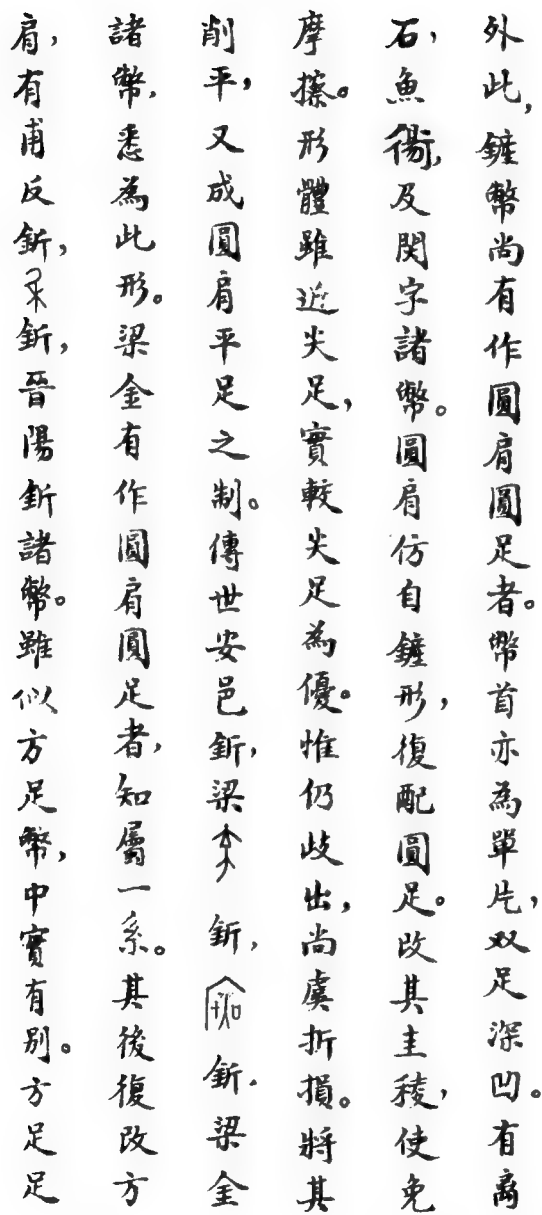 外此，鏟幣尚有作圓肩圓足者。幣首亦為單片，双足深凹。有离
石，魚，及関字諸幣。圓肩仿自鏟形，復配圓足。改其圭稜，使免
摩擦。形體雖近尖足，實較尖足為優。惟仍歧出，尚虞折損。將其
削平，又成圓肩平足之制。傳世安邑釿，梁釿，釿．梁金
諸幣．悉為此形。梁金有作圓肩圓足者，知屬一系。其後復改方
肩，有甫反釿，釿，晉陽釿諸幣。雖似方足幣，中實有别。方足足